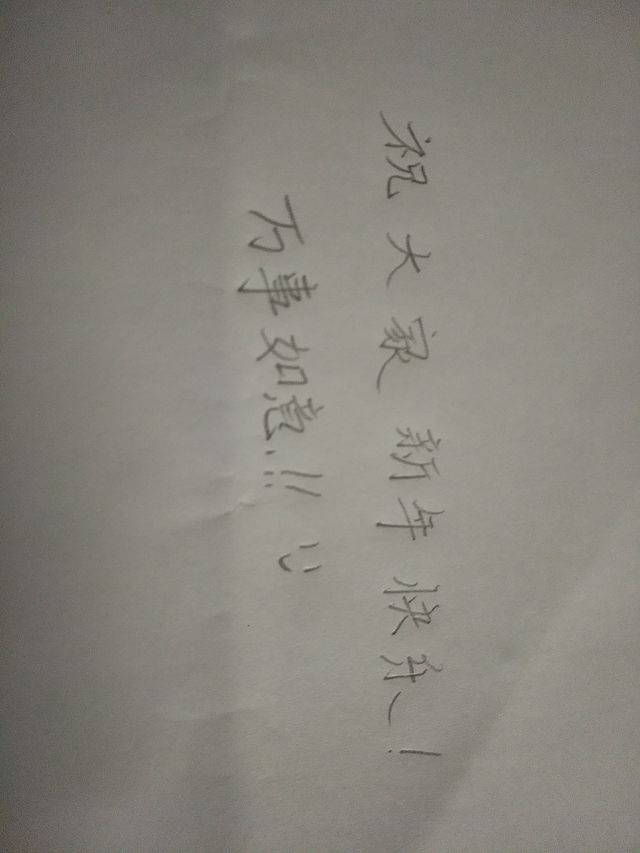 祝大家新年快乐!
万事如意.!! :)